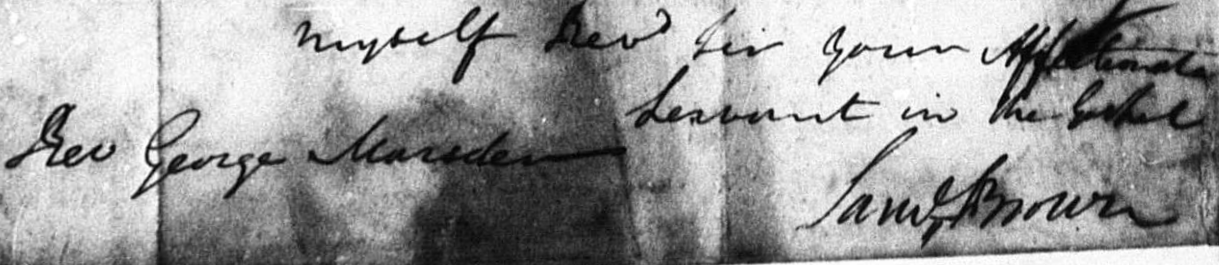 myself Revd Sir your Affectionate
Servant in the Gospel
Rev George Marsden
Saml Brown